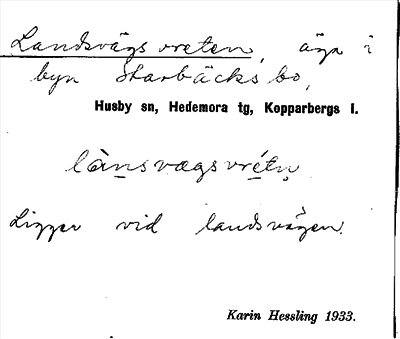 Landsvägsvreten, äga i
byn Starbäcksbo,
Husby sn, Hedemora tg, Kopparbergs l.
lànsvægsvrétn
Ligger vid landsvägen.
Karin Hessling 1933.